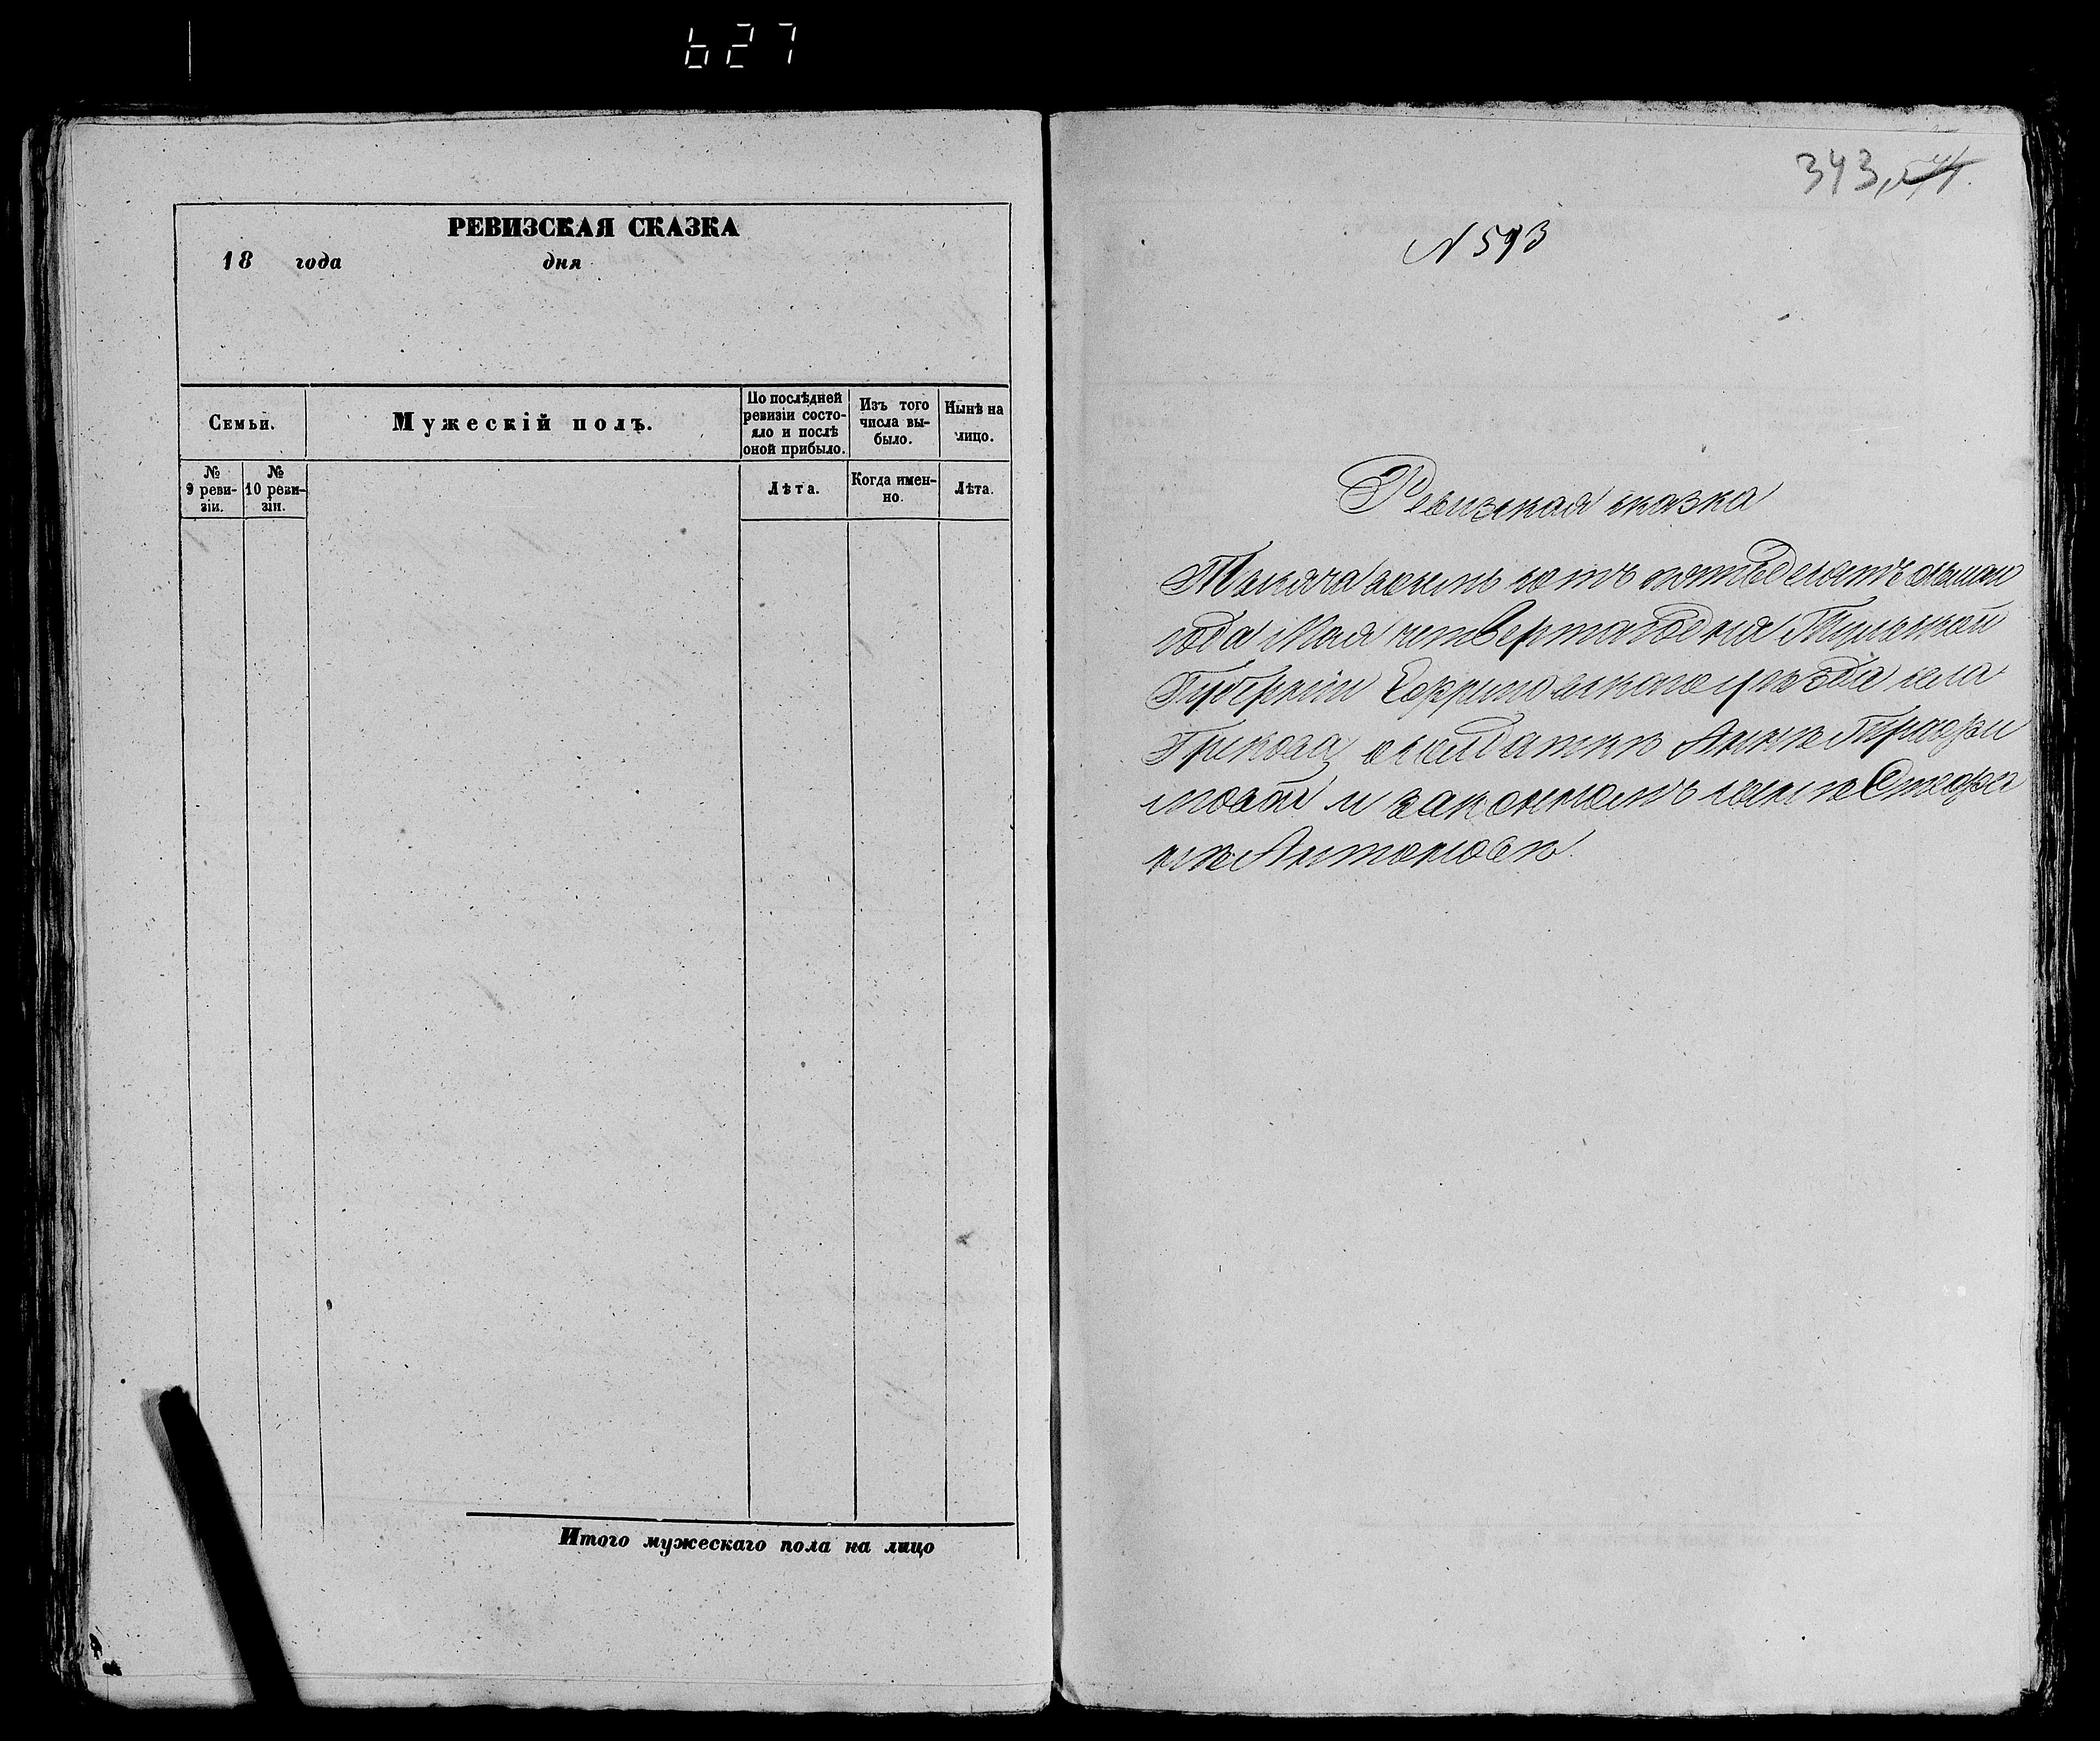 627
РЕВИЗСКАЯ СКАЗКА
18 года дня
Семьи.
Мужескій полъ.
По послѣдней ревизіи состояло и послѣ оной прибыло.
Изъ того числа выбыло.
Нынѣ на лицо.
№ 9 ревизіи.
№ 10 ревизіи.
Лѣта.
Когда именно.
Лѣта.
Итого мужескаго пола на лицо
343,
N 593
Ревизская сказка
Тысяча восемь сотъ пятьдесятъ осьмаго
года Мая четвертаго дня Тульской
Губерніи Ефремовскаго уѣзда села
солдаткѣ Аннѣ
и законномъ сынѣ Стефа
нѣ Антоновѣ.